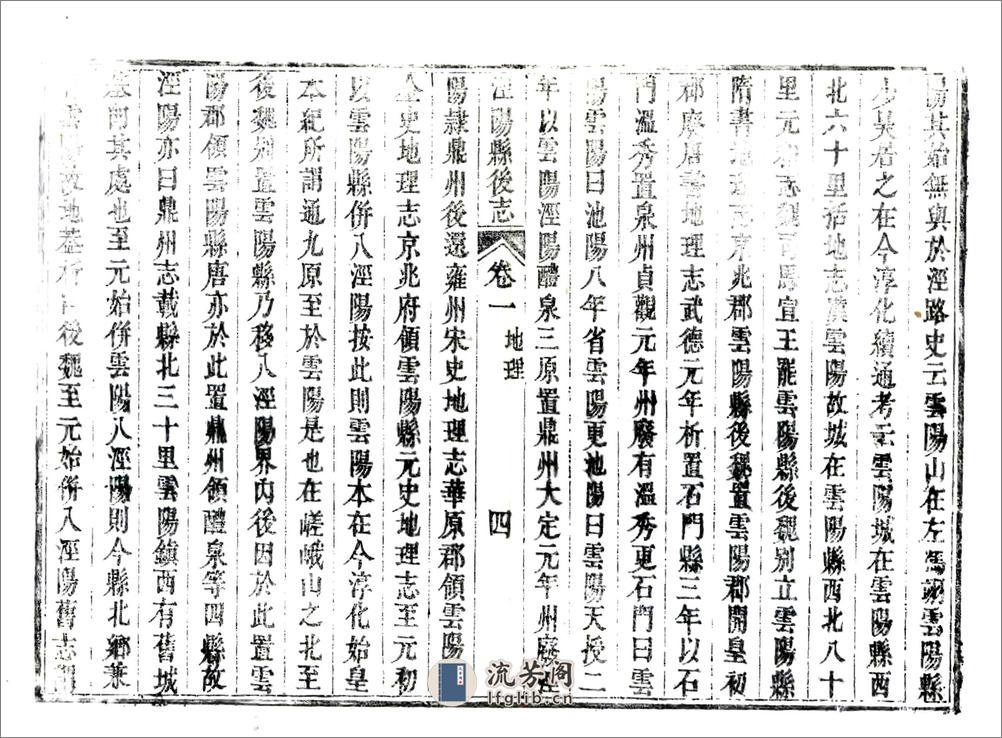 陽其始無與於涇路史云雲陽山在左馮翊雲陽縣
少昊居之在今淳化續通考云雲陽城在雲陽縣西
北六十里括地志漢雲陽故城在雲陽縣西北八十
里元和志魏司馬宣王罷雲陽縣後魏別立雲陽縣
隋書地理志京兆郡雲陽縣後魏置雲陽郡開皇初
郡廢唐書地理志武德元年析置石門縣三年以石
門溫秀置泉州貞觀元年州廢有溫秀更石門曰雲
陽雲陽曰池陽八年省雲陽更池陽曰雲陽天授二
年以雲陽涇陽醴泉三原置鼎州大定元年州廢
涇陽縣後志
卷一
地理
四
陽隸鼎州後還雍州宋史地理志華原郡領雲陽
金史地理志京兆府領雲陽縣元史地理志至元初
以雲陽縣併入涇陽按此則雲陽本在今淳化始皇
本紀所謂通九原至於雲陽是也在嵯峨山之北至
後魏別置雲陽縣乃移入涇陽界內後因於此置雲
陽郡領雲陽縣唐亦於此置鼎州領醴泉等四縣故
涇陽亦曰鼎州志載縣北三十里雲陽鎮西有舊城
門其處也至元始併雲陽入涇陽則今縣北鄉兼
雲陽故地蓋後魏至元始併入涇陽舊志
流芳阁
lfglib.cn